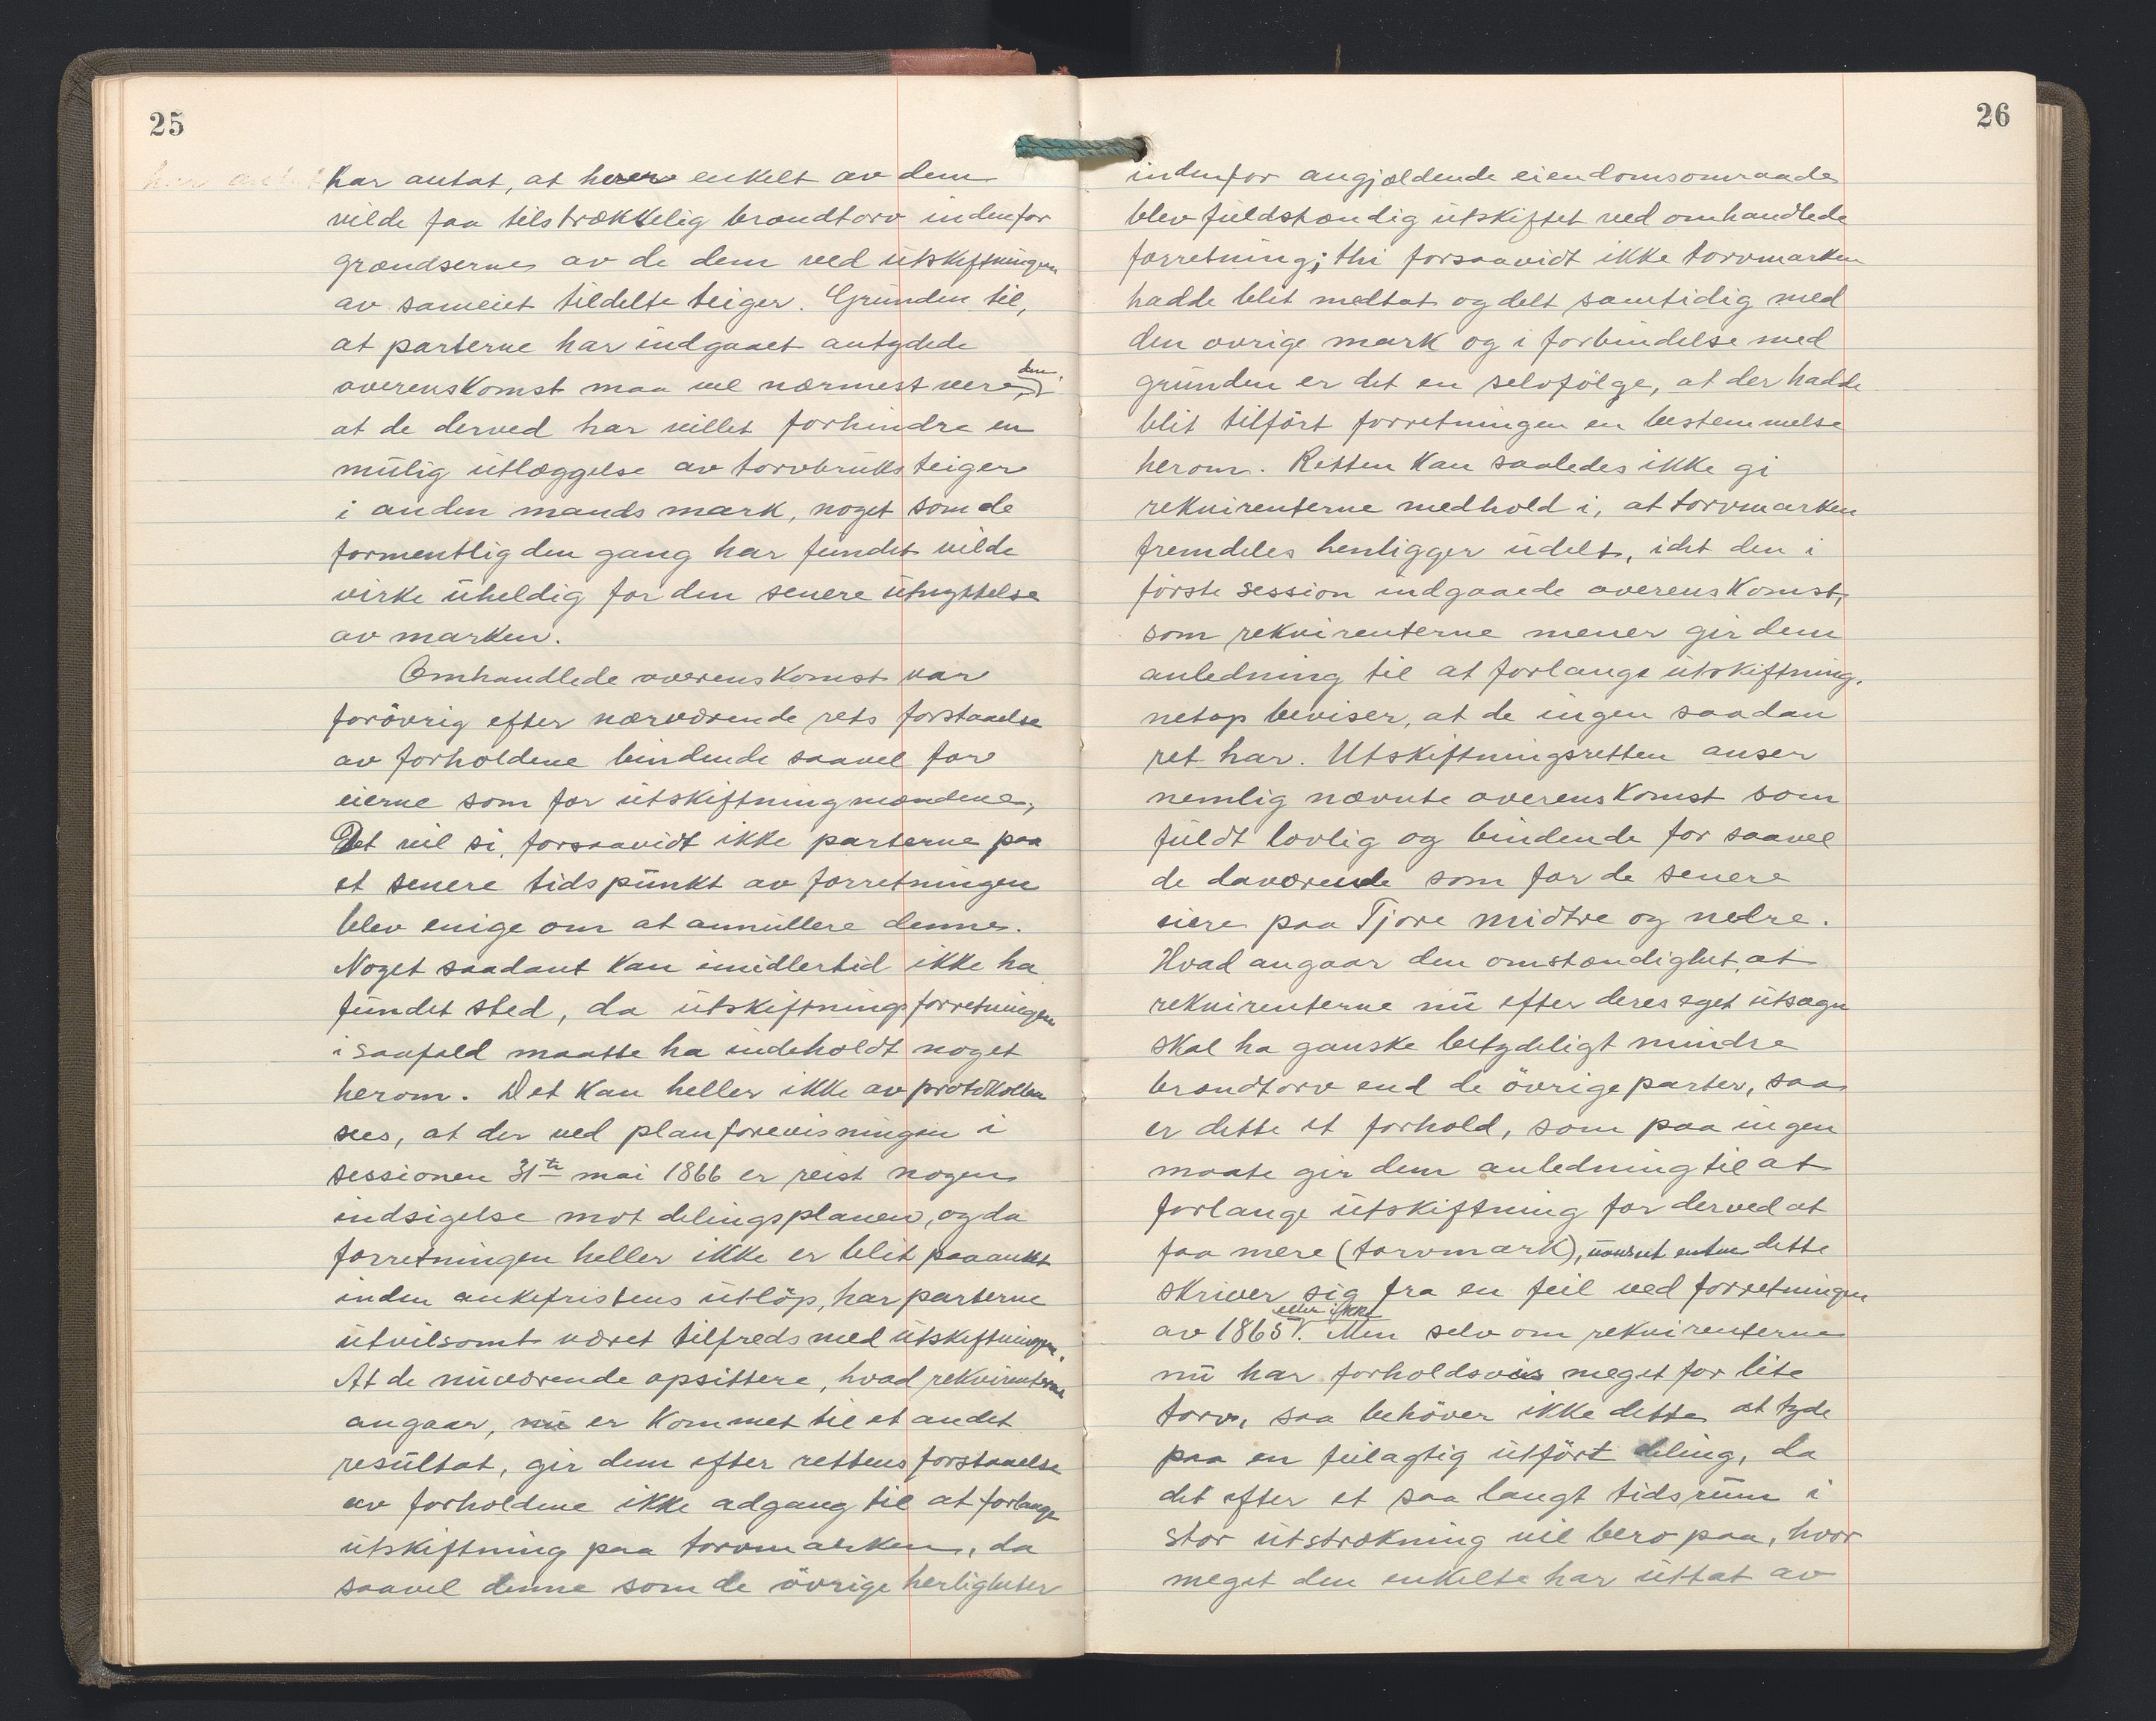 25
har antat, at hver enkelt av dem
vilde faa tilstrækkelig brændtorv indenfor
grændserne av de dem ved utskiftningen
av sameiet tildelte teiger. Grunden til,
at parterne har indgaaet antydede
overenskomst maa vel nærmest være, den,
at de derved har villet forhindre en
mulig utlæggelse av torvbruksteiger
i anden mands mark, noget som de
formentlig den gang har fundet vilde
virke uheldig for den senere utnyttelse
av marken.
Omhandlede overenskomst var
forövrig efter nærværende rets forstaaelse
av forholdene bindende saavel for
eierne som for utskiftningmændene,
Det vil si, forsaavidt ikke parterne paa
et senere tidspunkt av forretningen
blev enige om at annullere denne.
Noget saadant kan imidlertid ikke ha
fundet sted, da utskiftningsforretningen
i saafald maatte ha indeholdt noget
herom. Det kan heller ikke av protokollen
sees, at der ved planforevisningen i
sessionen 31te mai 1866 er reist nogen
indsigelse mot delingsplanen, og da
forretningen heller ikke er blit paaanket
inden ankefristens utlöp, har parterne
utvilsomt været tilfreds med utskiftningen.
At de nuværende opsittere, hvad rekvirenterne
angaar, nu er kommet til et andet
resultat, gir dem efter rettens forstaaelse
av forholdene ikke adgang til at forlange
utskiftning paa torvmarken, da
saavel denne som de övrige herligheter
26
indenfor angjældende eiendomsomraade
blev fuldstændig utskiftet ved omhandlede
forretning; thi forsaavidt ikke torvmarken
hadde blit medtat og delt samtidig med
den ovrige mark og i forbindelse med
grunden er det en selvfölge, at der hadde
blit tilfört forretningen en bestemmelse
herom. Retten kan saaledes ikke gi
rekvirenterne medhold i, at torvmarken
fremdeles henligger udelt, idet den i
förste session indgaaede overenskomst,
som rekvirenterne mener gir dem
anledning til at forlange utskiftning,
netop beviser, at de ingen saadan
ret har. Utskiftningsretten anser
nemlig nævnte overenskomst som
fuldt lovlig og bindende for saavel
de daværende som for de senere
eiere paa Tjore midtre og nedre.
Hvad angaar den omstændighet, at
rekvirenterne nu efter deres eget utsagn
skal ha ganske betydeligt mindre
brændtorv end de övrige parter, saa
er dette et forhold, som paa ingen
maate gir dem anledning til at
forlange utskiftning for derved at
faa mere (torvmark), uanset enten dette
skriver sig fra en feil ved forretningen
av 1865 eller ikke. Men selv om rekvirenterne
nu har forholdsvis meget for lite
torv, saa behöver ikke dette at tyde
paa en feilagtig utfört deling, da
det efter et saa langt tidsrum i
stor utstrækning vil bero paa, hvor
meget den enkelte har uttat av